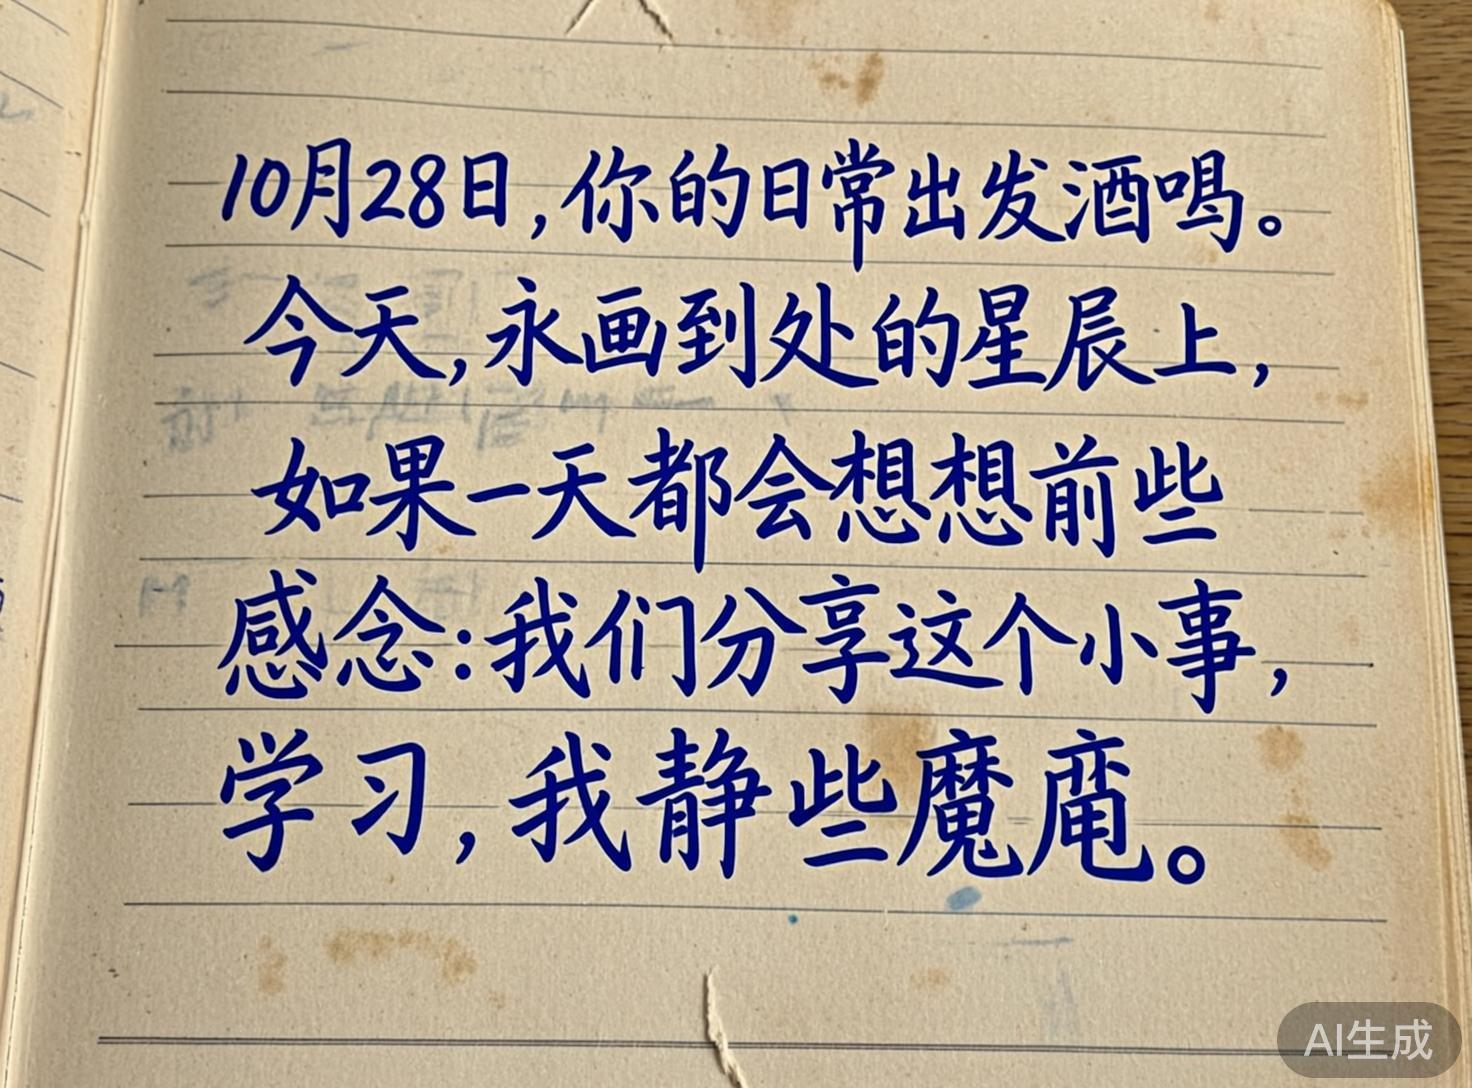 10月28日,你的日常出发酒喝。
今天,永画到处的星辰上,
如果一天都会想想前些
感念:我们分享这个小事,
学习,我静些魔。
AI生成